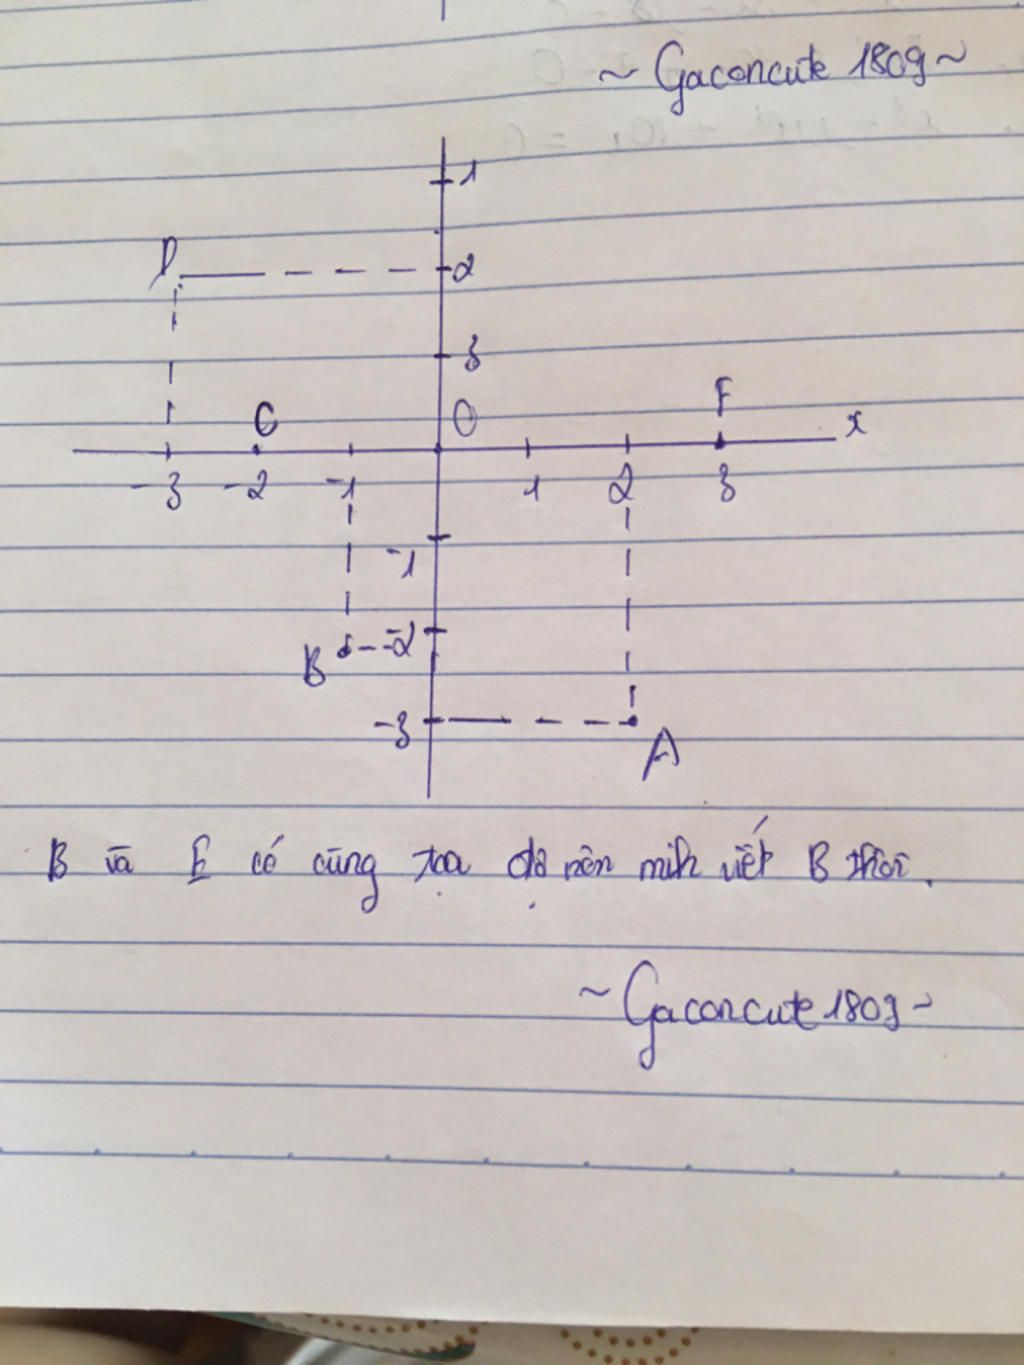 ~ Gaconcute 1809 ~
1
D
2
3
C
O
F
x
-3 -2 -1 1 2 3
-1
B -2
-3
A
B và E có cùng tọa độ nên mình viết B thôi.
~ Gaconcute 1809 ~